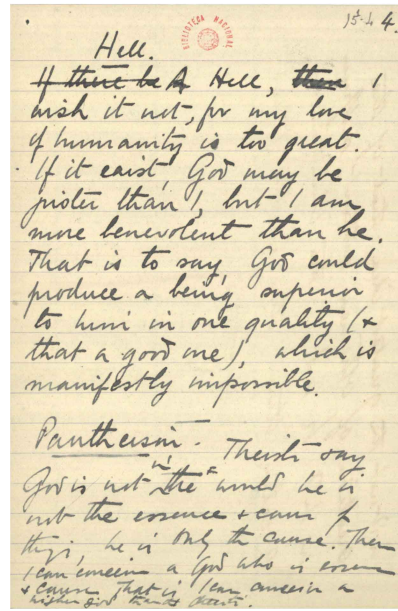 15-4 4.
BIBLIOTECA NACIONAL
Hell.
If there be A Hell, then I
wish it not, for my love
of humanity is too great.
If it exist, God may be
juster than I, but I am
more benevolent than he.
That is to say, God could
produce a being superior
to him in one quality (+
that a good one), which is
manifestly impossible.
Pantheism. Theists say
God is not "in" the world he is
not the essence + cause of
things, he is only the cause. Then
I can conceive a God who is essence
+ cause. That is I can conceive a
higher God than theirs.